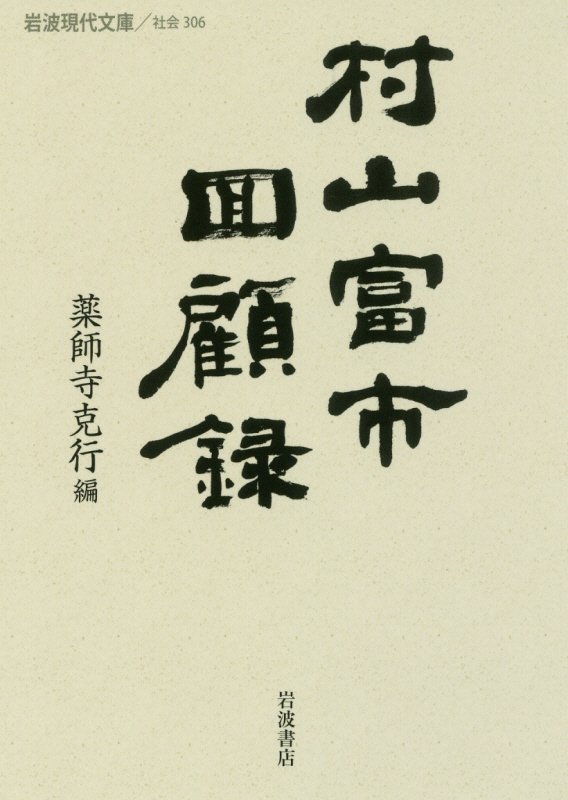 岩波現代文庫/社会 306
村山富市
回顧録
薬師寺克行 編
岩波書店